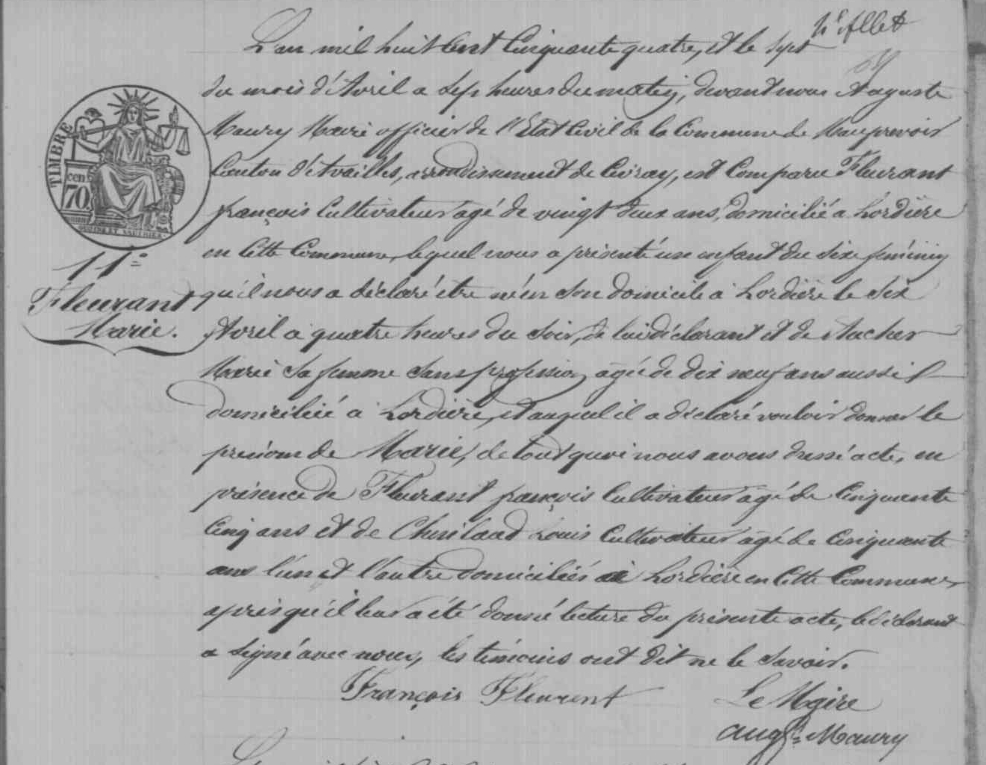 L'an mil huit Cent Cinquante quatre, et le sept
du mois d'Avril a sept heures du matin, devant nous Auguste
Maury Maire officier de l'Etat Civil de la Commune de Mauprevoir
Canton d'Availles, arrondissement de Civray, est Comparu Fleurant
françois Cultivateur agé de vingt deux ans, domicilié a Lordière
en Cette Commune, lequel nous a présenté un enfant du Sexe féminin
qu'il nous a déclaré être né en Son domicile à Lordière le Six
Avril a quatre heures du Soir, de lui déclarant et de
Marie Sa femme Sans profession, agée de dix neuf ans aussi
domiciliée à Lordière, et auquel il a déclaré vouloir donner le
prénom de Marie, de tout quoi nous avons dressé acte, en
présence de Fleurant françois Cultivateur agé de Cinquante
Cinq ans et de Louis Cultivateur agé de Cinquante
ans l'un et l'autre domiciliés a Lordière en Cette Commune,
après qu'il leur a été donné lecture du présente acte, le déclarant
a Signé avec nous, les témoins ont dit ne le Savoir.
François Fleurent
Le Maire
Augte Maury
TIMBRE
70 cen
11e
Fleurant
Marie.